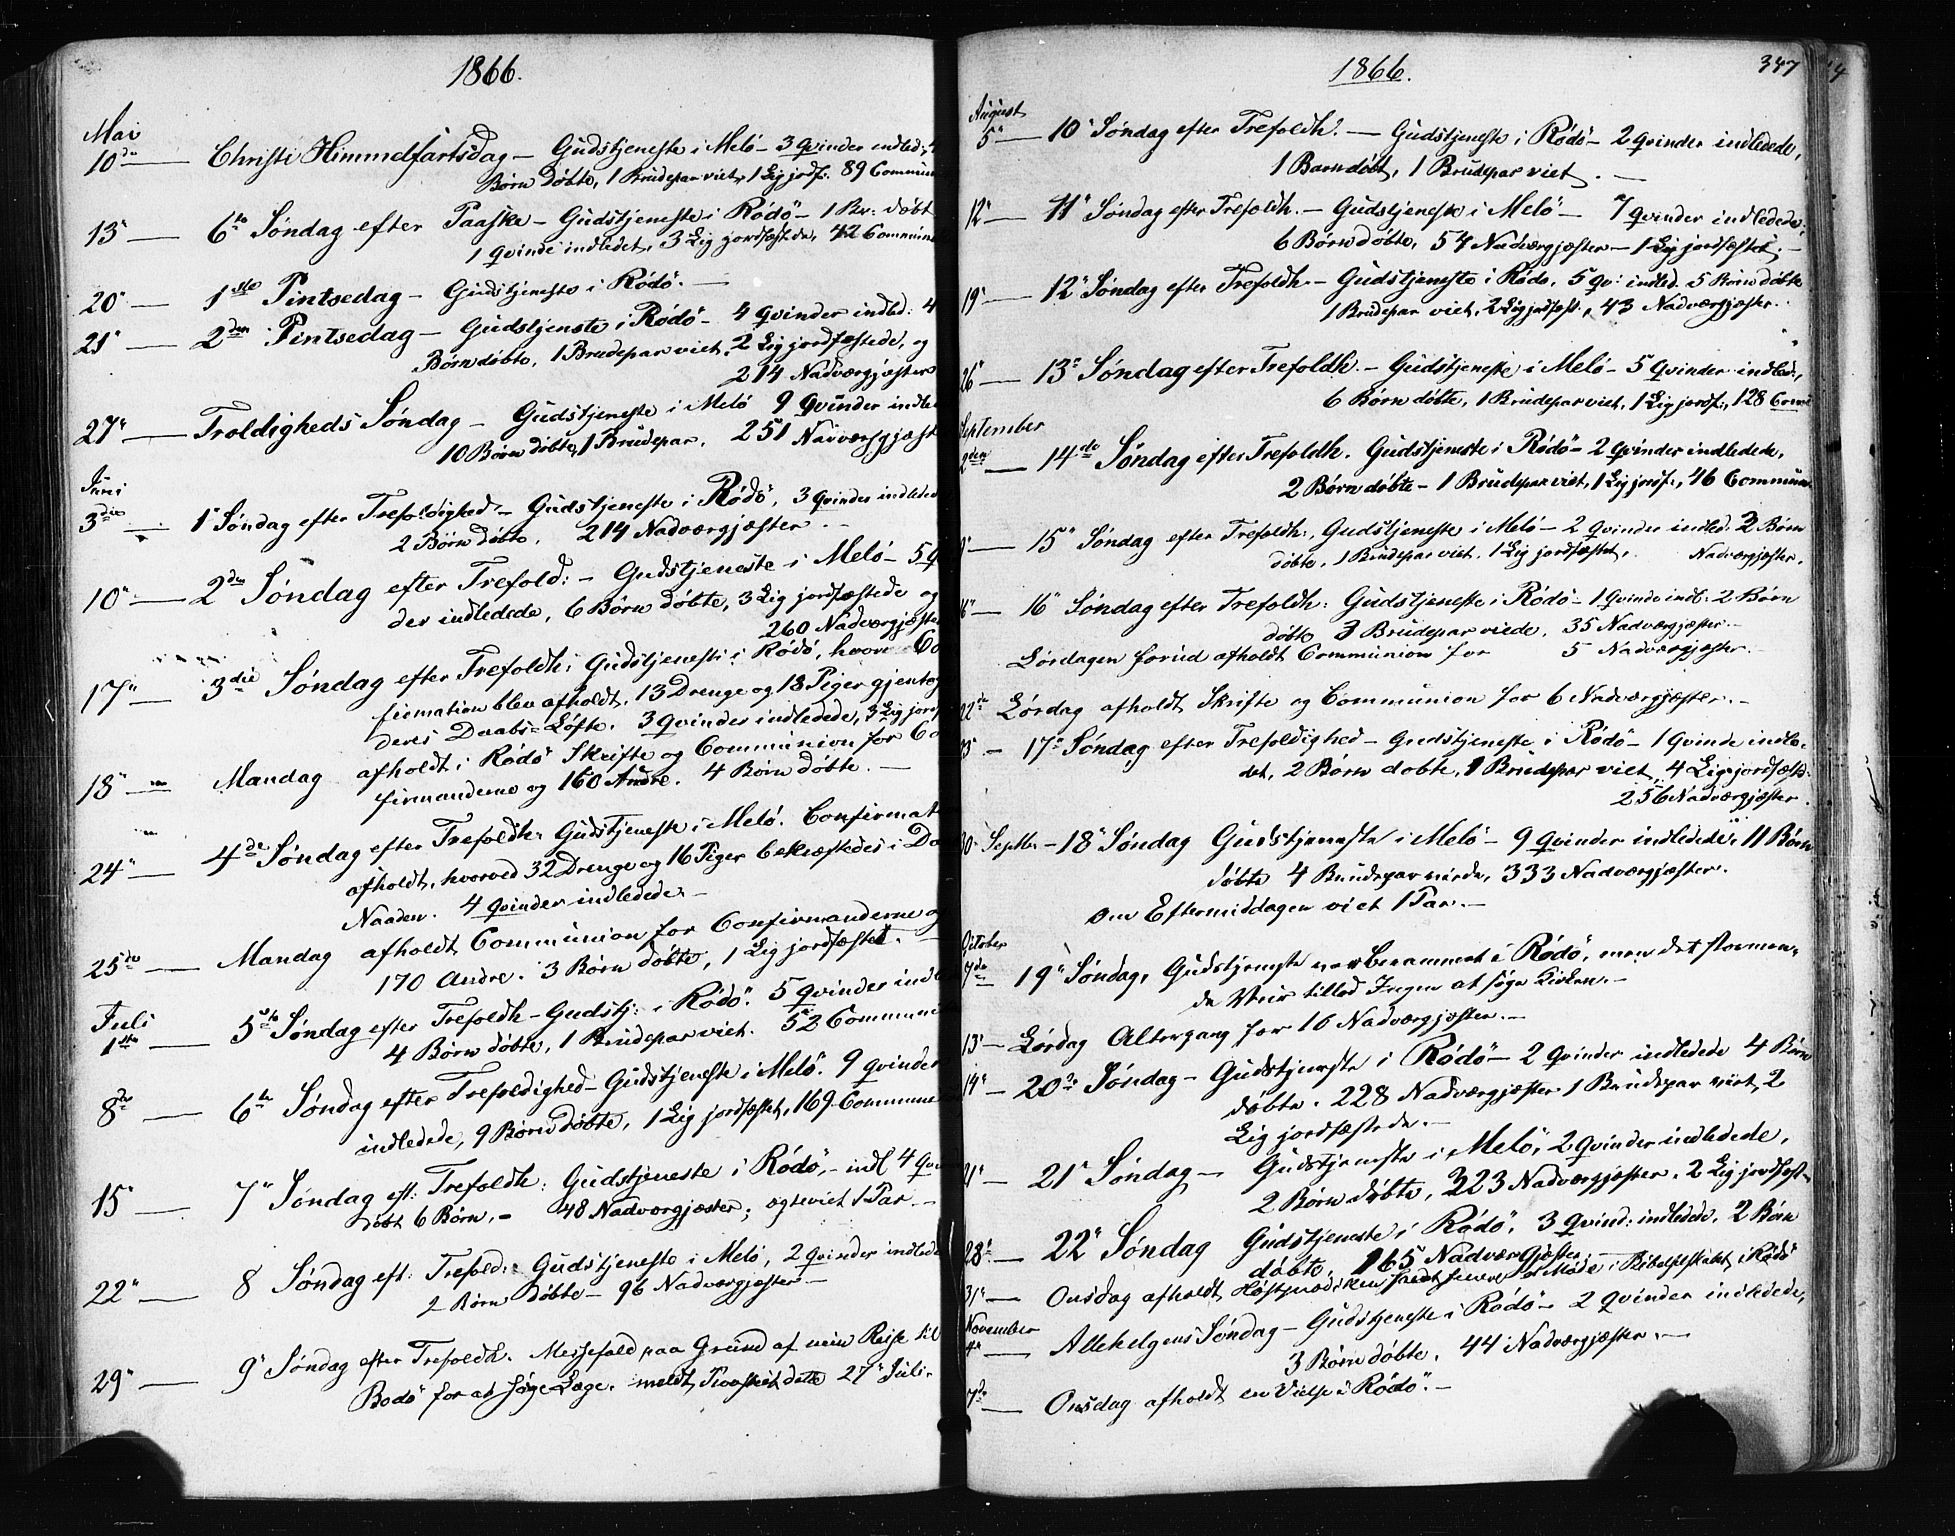 1866.
Mai
10de — Christi Himmelfartsdag — Gudstjeneste i Melö — 3 Qvinder indled.,
Börn döbte, 1 Brudepar viet, 1 Lig jordf. 89 Commun
13" — 6te Söndag efter Paaske — Gudstjeneste i Rödö — 1 Br: döbt
1 Qvinde indledet, 3 Lig jordfæstede, 42 Commun
20" — 1ste Pintsedag — Gudstjeneste i Rödö. —
21" — 2den Pintsedag — Gudstjenste i Rödö — 4 Qvinder indled: 4
Börn döbte, 1 Brudepar viet, 2 Lig jordfæstede, og
214 Nadværgjæster
27" — Troldigheds Söndag — Gudstjeneste i Melö 9 Qvinder indle
10 Börn döbte, 1 Brudepar. 251 Nadværgjæst
Juni
3die — 1" Söndag efter Trefoldighed — Gudstjeneste i Rödö, 3 Qvinder indlede
2 Börn döbte. 214 Nadværgjæster. —
10" — 2den Söndag efter Trefold: — Gudstjeneste i Melö — 5 Q
der indledede, 6 Börn döbte, 3 Lig jordfæstede og
260 Nadværgjæste
17" — 3die Söndag efter Trefoldh: Gudstjeneste i Rödö, hvor Co
firmation blev afholdt. 13 Drenge og 18 Piger gjentog
deres Daabs-Löfte. 3 Qvinder indledede, 3 Lig jord
18" — Mandag afholdt i Rödö Skrifte og Communion for Co
firmanderne og 160 Andre. 4 Börn döbte. —
24" — 4de Söndag efter Trefoldh: Gudstjeneste i Melö. Confirmat
afholdt, hvorved 32 Drenge og 16 Piger bekræftedes i Da
Naaden. 4 Qvinder indledede. —
25de — Mandag afholdt Communion for Confirmanderne og
170 Andre. 3 Börn döbte, 1 Lig jordfæstet. —
Juli
1ste — 5te Söndag efter Trefoldh — Gudstj: i Rödö. 5 Qvinder indl
4 Börn döbte, 1 Brudepar viet. 52 Communi
8de — 6te Söndag efter Trefoldighed — Gudstjeneste i Melö. 9 Qvinder
indledede, 9 Börn döbte, 1 Lig jordfæstet, 169 Commune
15" — 7" Söndag eft: Trefoldh: Gudstjeneste i Rödö, — indl 4 Qvi
döbt 6 Börn, — 48 Nadværgjæster; ægteviet 1 Par —
22" — 8 Söndag eft: Trefold: Gudstjeneste i Melö, 2 Qvinder indlede
2 Börn döbte — 96 Nadværgjæster —
29" — 9" Söndag efter Trefoldh. Messefald paa Grund af min Reise til
Bodö for at söge Læge. meldt Provstiet dette 27" Juli.
1866.
347
August
5" — 10" Söndag efter Trefoldh. — Gudstjeneste i Rödö — 2 Qvinder indledede,
1 Barn döbt, 1 Brudepar viet. —
12" — 11" Söndag efter Trefoldh. — Gudstjeneste i Melö — 7 Qvinder indledede,
6 Börn döbte, 54 Nadværgjæster — 1 Lig jordfæstet. —
19" — 12" Söndag efter Trefoldh. — Gudstjeneste i Rödö, 5 Qv: indled. 5 Börn döbte
1 Brudepar viet, 2 Lig jordfæst., 43 Nadværgjæster.
26" — 13" Söndag efter Trefoldh. — Gudstjeneste i Melö — 5 Qvinder indled.,
6 Börn döbte, 1 Brudepar viet, 1 Lig jordf., 128 Comm
September
2den — 14de Söndag efter Trefoldh. Gudstjeneste i Rödö — 2 Qvinder indledede,
2 Börn döbte — 1 Brudepar viet, 1 Lig jordf., 46 Commun
9" — 15" Söndag efter Trefoldh:, Gudstjeneste i Melö — 2 Qvinder indled. 2 Börn
döbte, 1 Brudepar viet. 1 Lig jordfæstet. Nadværgjæster.
16" — 16" Söndag efter Trefoldh: Gudstjeneste i Rödö — 1 Qvinde indl: 2 Börn
döbte 3 Brudepar viede, 35 Nadværgjæster. —
Lördagen forud afholdt Communion for 5 Nadværgjæster. —
22de Lördag afholdt Skrifte og Communion for 6 Nadværgjæster. —
23" — 17" Söndag efter Trefoldighed — Gudstjeneste i Rödö — 1 Qvinde indle-
det, 2 Börn döbte, 1 Brudepar viet, 4 Lig jordfæsted:
256 Nadværgjæster.
30" Septbr — 18" Söndag Gudstjeneste i Melö — 9 Qvinder indledede, 11 Börn
döbte 4 Brudepar viede, 333 Nadværgjæster.
Om Eftermiddagen viet 1 Par. —
October
7de — 19" Söndag, Gudstjeneste var berammet i Rödö, men det stormen-
de Veir tillod Ingen at söge Kirken. —
13" — Lördag Altergang for 16 Nadværgjæster. —
14" — 20de Söndag — Gudstjeneste i Rödö — 2 Qvinder indledede 4 Börn
döbte. 228 Nadværgjæster 1 Brudepar viet, 2
Lig jordfæstede. —
21" — 21" Söndag — Gudstjeneste i Melö, 2 Qvinder indledede,
2 Börn döbte, 323 Nadværgjæster. 2 Lig jordfæst
28de — 22" Söndag Gudstjeneste i Rödö. 3 Qvind: indledede. 2 Börn
döbte. 165 Nadværgjæster. —
31" — Onsdag afholdt Möde i Bibelselskabet i Rödö
November
4" — Allehelgens Söndag — Gudstjeneste i Rödö — 2 Qvinder indledede,
3 Börn döbte. 44 Nadværgjæster. —
7de — Onsdag afholdt en Vielse i Rödö. —